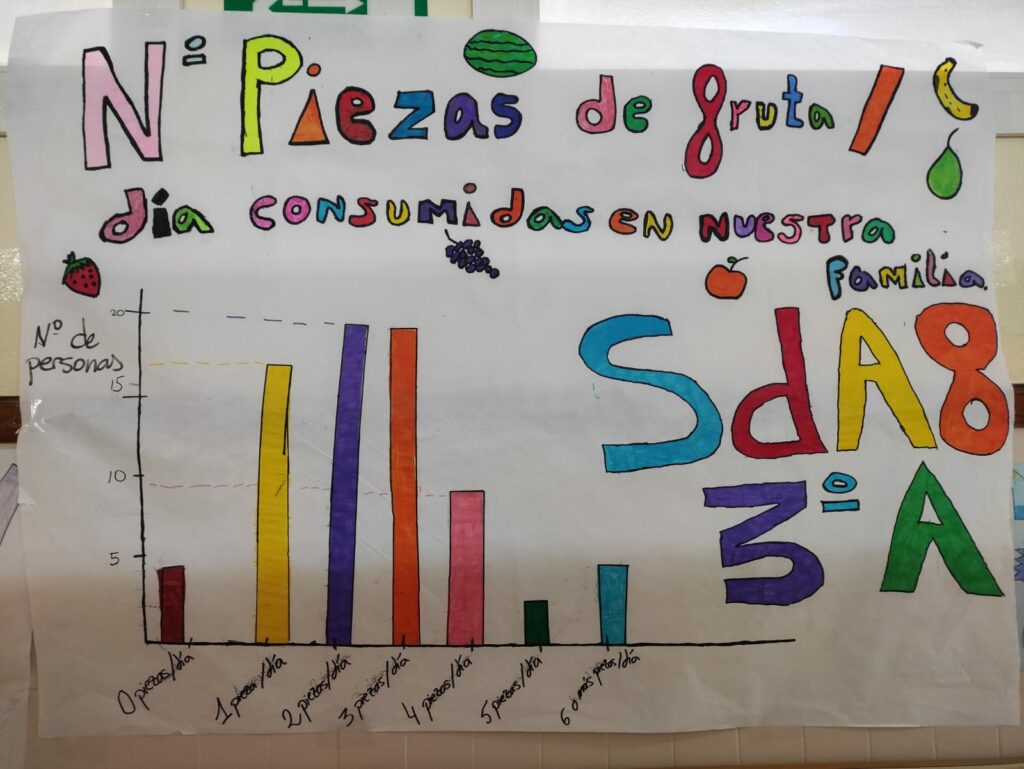 Nº Piezas de fruta /
día consumidas en nuestra
familia.
Nº de
personas
20
15
10
5
SdA8
3º A
0 piezas/día
1 pieza/día
2 piezas/día
3 piezas/día
4 piezas/día
5 piezas/día
6 o más piezas/día